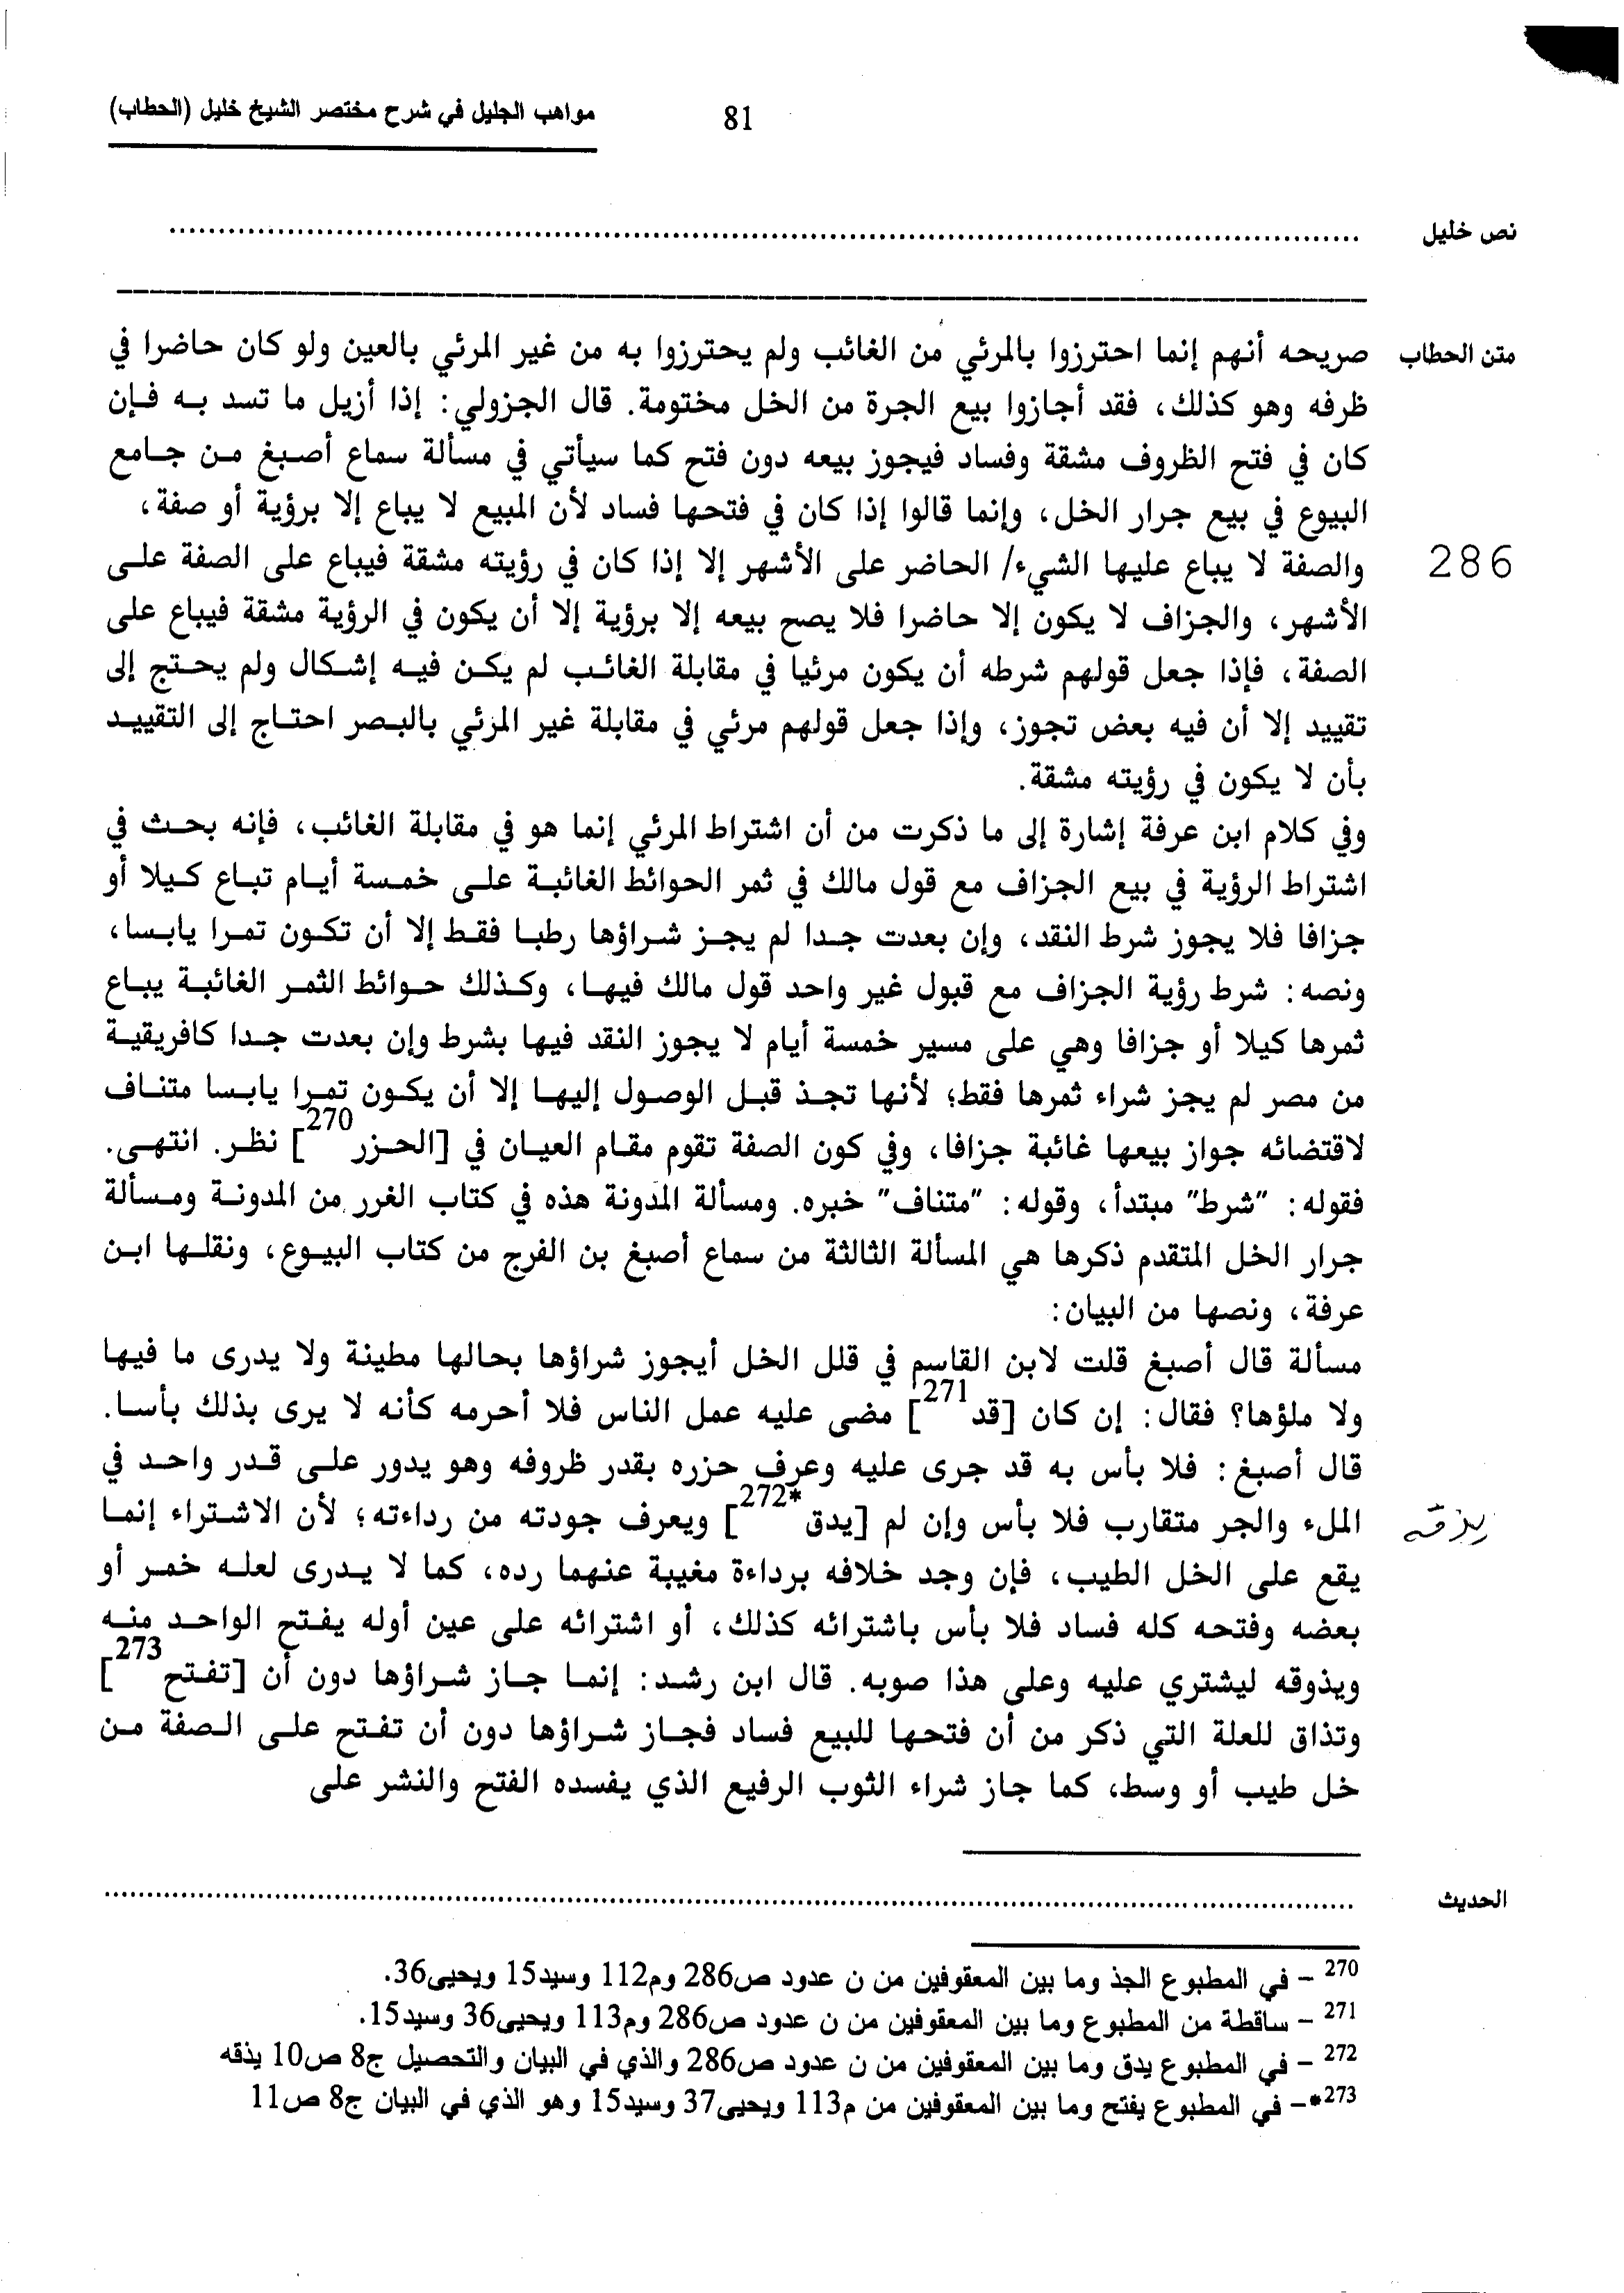 مواهب الجليل في شرح مختصر الشيخ خليل (الحطاب)
81
نص خليل ........................................
متن الحطاب صريحه أنهم إنما احترزوا بالمرئي من الغائب ولم يحترزوا به من غير المرئي بالعين ولو كان حاضرا في
ظرفه وهو كذلك، فقد أجازوا بيع الجرة من الخل مختومة. قال الجزولي: إذا أزيل ما تسد به فإن
كان في فتح الظروف مشقة وفساد فيجوز بيعه دون فتح كما سيأتي في مسألة سماع أصبغ من جامع
البيوع في بيع جرار الخل، وإنما قالوا إذا كان في فتحها فساد لأن المبيع لا يباع إلا برؤية أو صفة،
286 والصفة لا يباع عليها الشيء/ الحاضر على الأشهر إلا إذا كان في رؤيته مشقة فيباع على الصفة على
الأشهر، والجزاف لا يكون إلا حاضرا فلا يصح بيعه إلا برؤية إلا أن يكون في الرؤية مشقة فيباع على
الصفة، فإذا جعل قولهم شرطه أن يكون مرئيا في مقابلة الغائب لم يكن فيه إشكال ولم يحتج إلى
تقييد إلا أن فيه بعض تجوز، وإذا جعل قولهم مرئي في مقابلة غير المرئي بالبصر احتاج إلى التقييد
بأن لا يكون في رؤيته مشقة.
وفي كلام ابن عرفة إشارة إلى ما ذكرت من أن اشتراط المرئي إنما هو في مقابلة الغائب، فإنه بحث في
اشتراط الرؤية في بيع الجزاف مع قول مالك في ثمر الحوائط الغائبة على خمسة أيام تباع كيلا أو
جزافا فلا يجوز شرط النقد، وإن بعدت جدا لم يجز شراؤها رطبا فقط إلا أن تكون تمرا يابسا،
ونصه: شرط رؤية الجزاف مع قبول غير واحد قول مالك فيها، وكذلك حوائط الثمر الغائبة يباع
ثمرها كيلا أو جزافا وهي على مسير خمسة أيام لا يجوز النقد فيها بشرط وإن بعدت جدا كافريقية
من مصر لم يجز شراء ثمرها فقط؛ لأنها تجذ قبل الوصول إليها إلا أن يكون تمرا يابسا متناف
لاقتضائه جواز بيعها غائبة جزافا، وفي كون الصفة تقوم مقام العيان في [الحزر270] نظر. انتهى.
فقوله: ”شرط” مبتدأ، وقوله: ”متناف” خبره. ومسألة المدونة هذه في كتاب الغرر من المدونة ومسألة
جرار الخل المتقدم ذكرها هي المسألة الثالثة من سماع أصبغ بن الفرج من كتاب البيوع، ونقلها ابن
عرفة، ونصها من البيان:
مسألة قال أصبغ قلت لابن القاسم في قلل الخل أيجوز شراؤها بحالها مطينة ولا يدرى ما فيها
ولا ملؤها؟ فقال: إن كان [قد271] مضى عليه عمل الناس فلا أحرمه كأنه لا يرى بذلك بأسا.
قال أصبغ: فلا بأس به قد جرى عليه وعرف حزره بقدر ظروفه وهو يدور على قدر واحد في
الملء والجر متقارب فلا بأس وإن لم [يدق272*] ويعرف جودته من رداءته؛ لأن الاشتراء إنما
يذقه
يقع على الخل الطيب، فإن وجد خلافه برداءة مغيبة عنهما رده، كما لا يدرى لعله خمر أو
بعضه وفتحه كله فساد فلا بأس باشترائه كذلك، أو اشترائه على عين أوله يفتح الواحد منه
ويذوقه ليشتري عليه وعلى هذا صوبه. قال ابن رشد: إنما جاز شراؤها دون أن [تفتح273]
وتذاق للعلة التي ذكر من أن فتحها للبيع فساد فجاز شراؤها دون أن تفتح على الصفة من
خل طيب أو وسط، كما جاز شراء الثوب الرفيع الذي يفسده الفتح والنشر على
الحديث ........................................
270 – في المطبوع الجذ وما بين المعقوفين من ن عدود ص286 وم112 وسيد15 ويحيى36.
271 – ساقطة من المطبوع وما بين المعقوفين من ن عدود ص286 وم113 ويحيى36 وسيد15.
272 – في المطبوع يدق وما بين المعقوفين من ن عدود ص286 والذي في البيان والتحصيل ج8 ص10 يذقه
273*– في المطبوع يفتح وما بين المعقوفين من م113 ويحيى37 وسيد15 وهو الذي في البيان ج8 ص11